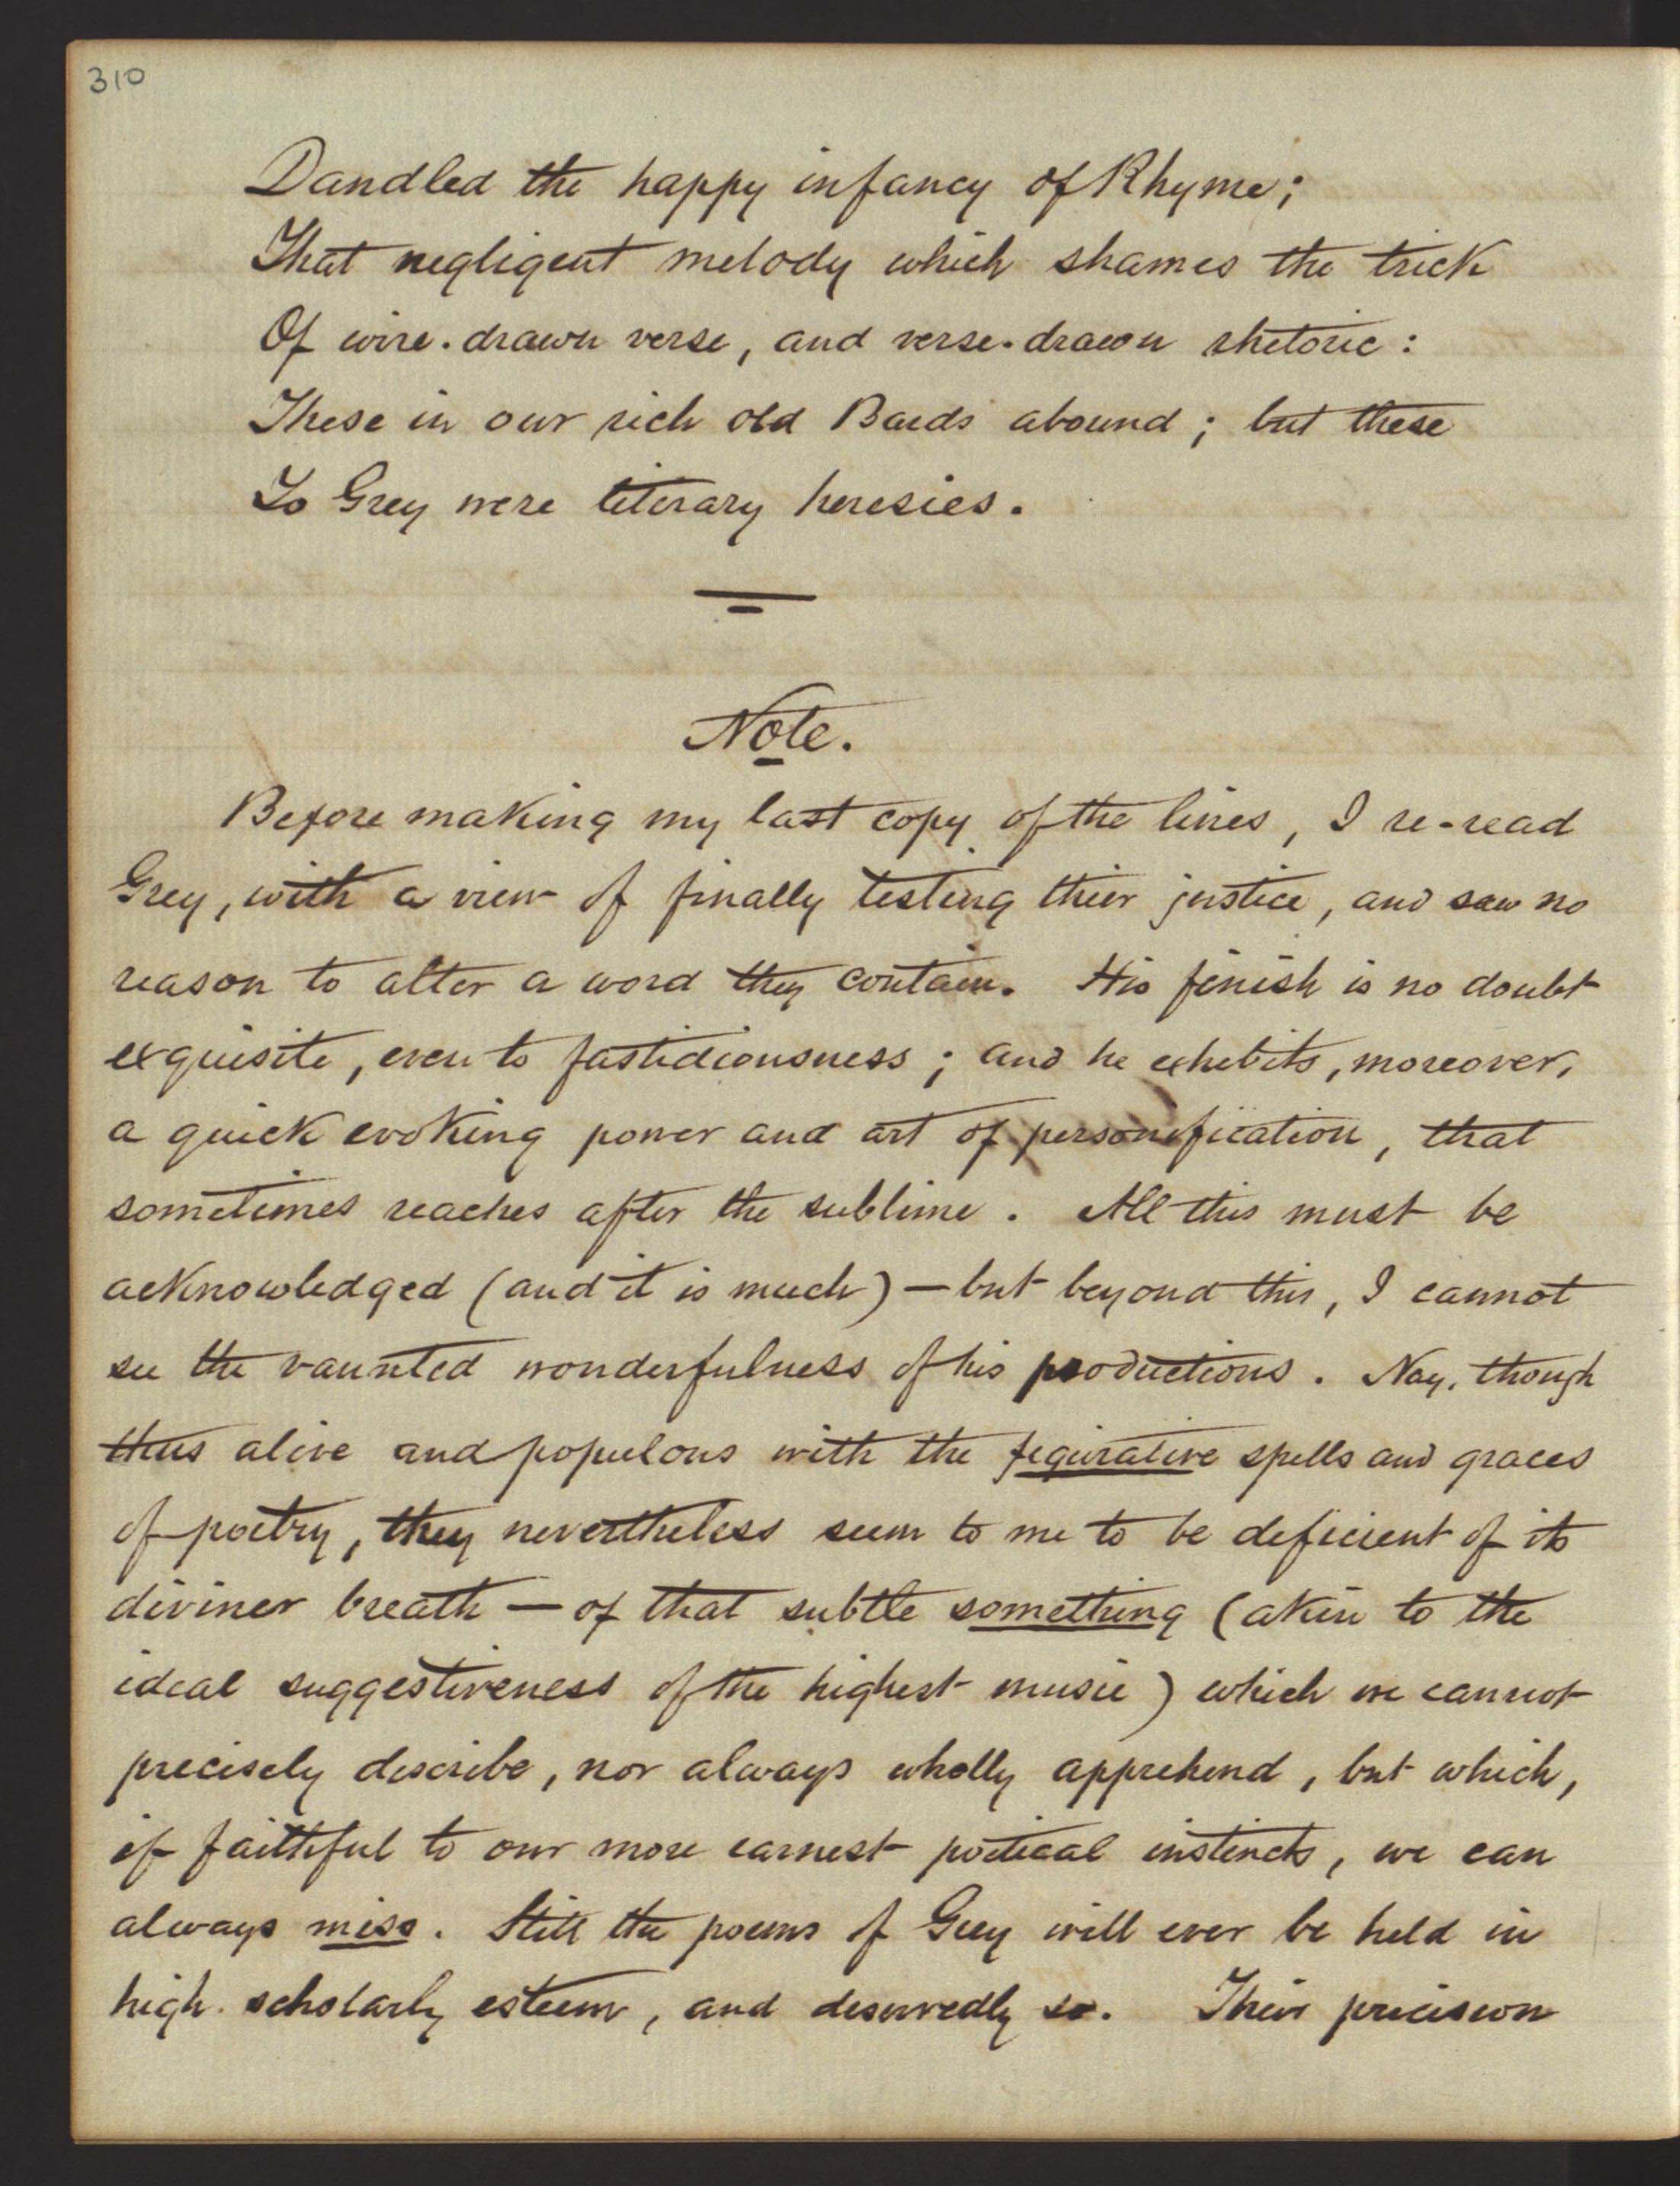 310
Dandled the happy infancy of Rhyme;
That negligent melody which shames the trick
Of wire-drawn verse, and verse-drawn rhetoric:
These in our rich old Bards abound; but these
To Grey were literary heresies.
Note.
Before making my last copy of the lines, I re-read
Grey, with a view of finally testing thier justice, and saw no
reason to alter a word they contain. His finish is no doubt
exquisite, even to fastidiousness; and he exhibits, moreover,
a quick evoking power and art of personification, that
sometimes reaches after the sublime. All this must be
acknowledged (and it is much) — but beyond this, I cannot
see the vaunted wonderfulness of his productions. Nay, though
thus alive and populous with the figurative spells and graces
of poetry, they nevertheless seem to me to be deficient of its
diviner breath — of that subtle something (akin to the
ideal suggestiveness of the highest music) which we cannot
precisely describe, nor always wholly apprehend, but which,
if faithful to our more earnest poetical instincts, we can
always miss. Still the poems of Grey will ever be held in
high scholarly esteem, and deservedly so. Their precision